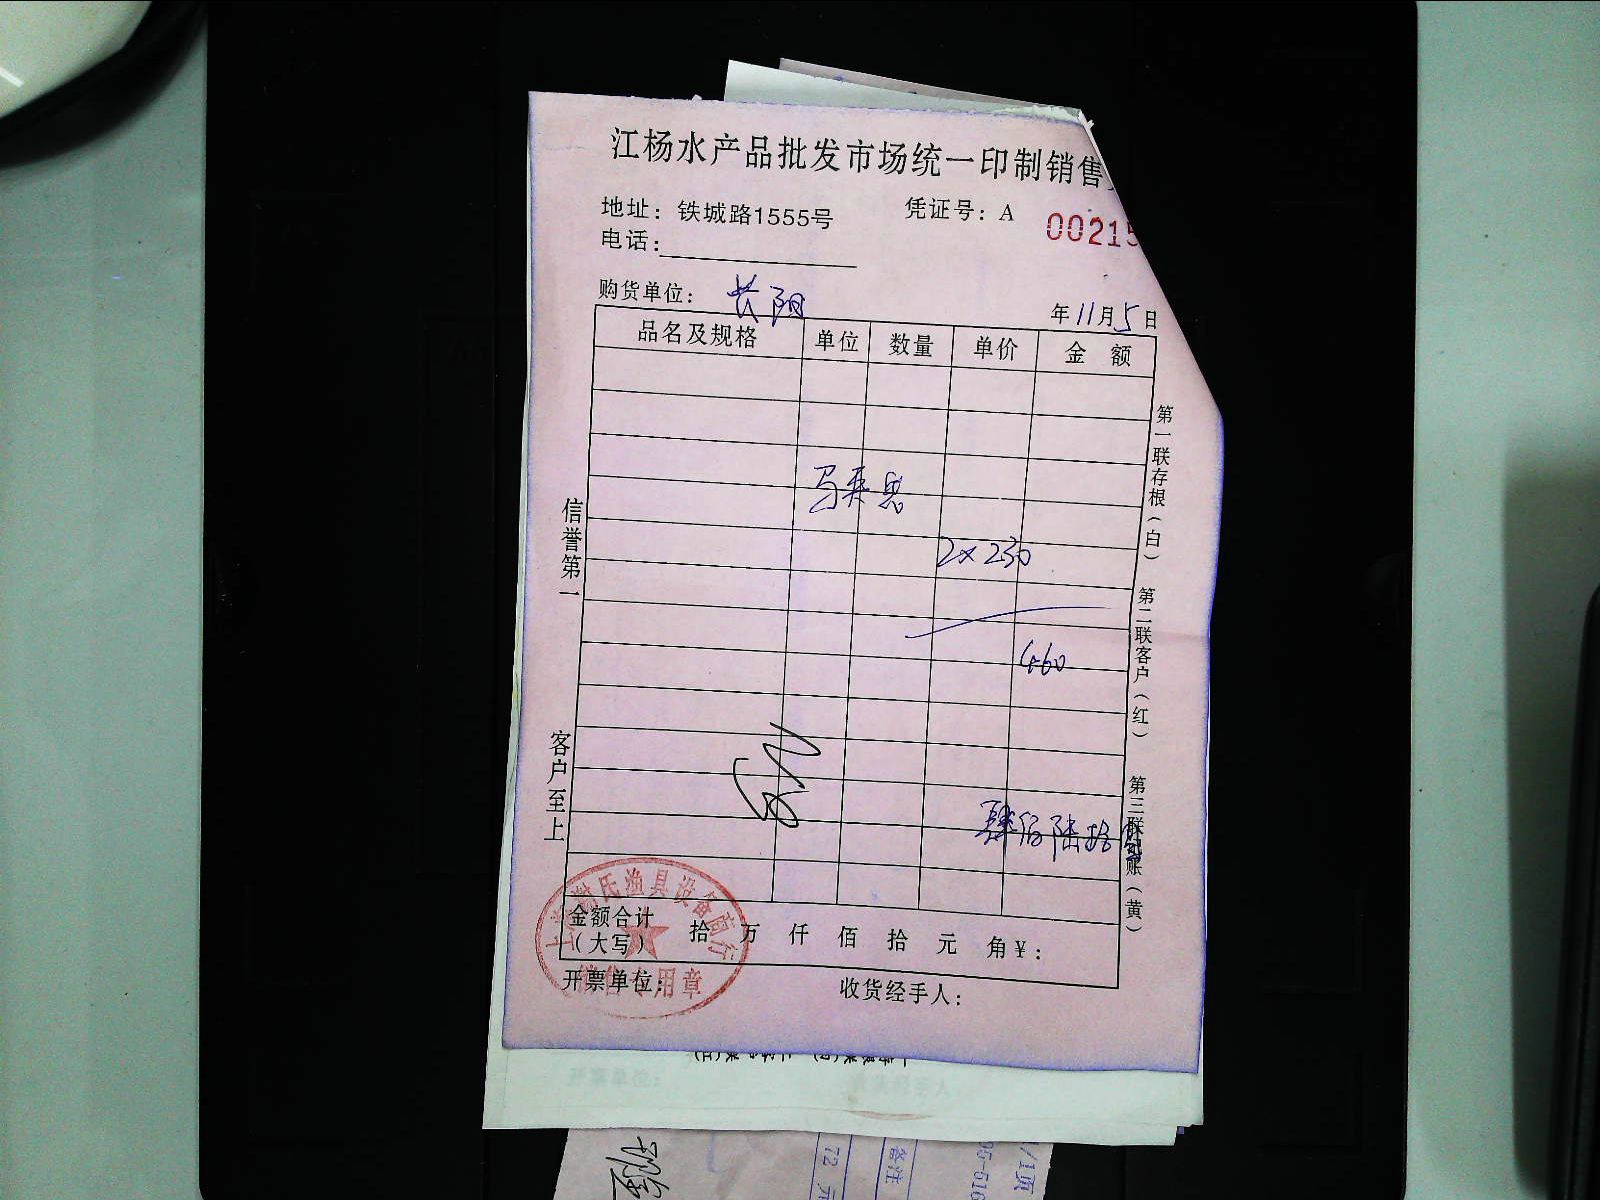 江杨水产品批发市场统一印制销售
地址：铁城路1555号
凭证号：A
00215
电话：
购货单位：长阳
年11月5日
品名及规格 单位 数量 单价 金 额
2×230
460
肆佰陆拾
金额合计
（大写）
拾 万 仟 佰 拾 元 角￥：
开票单位：
收货经手人：
信誉第一
客户至上
第一联存根（白）
第二联客户（红）
第三联记账（黄）
氏渔具设备商行
销售专用章
备注
72 元
/1页